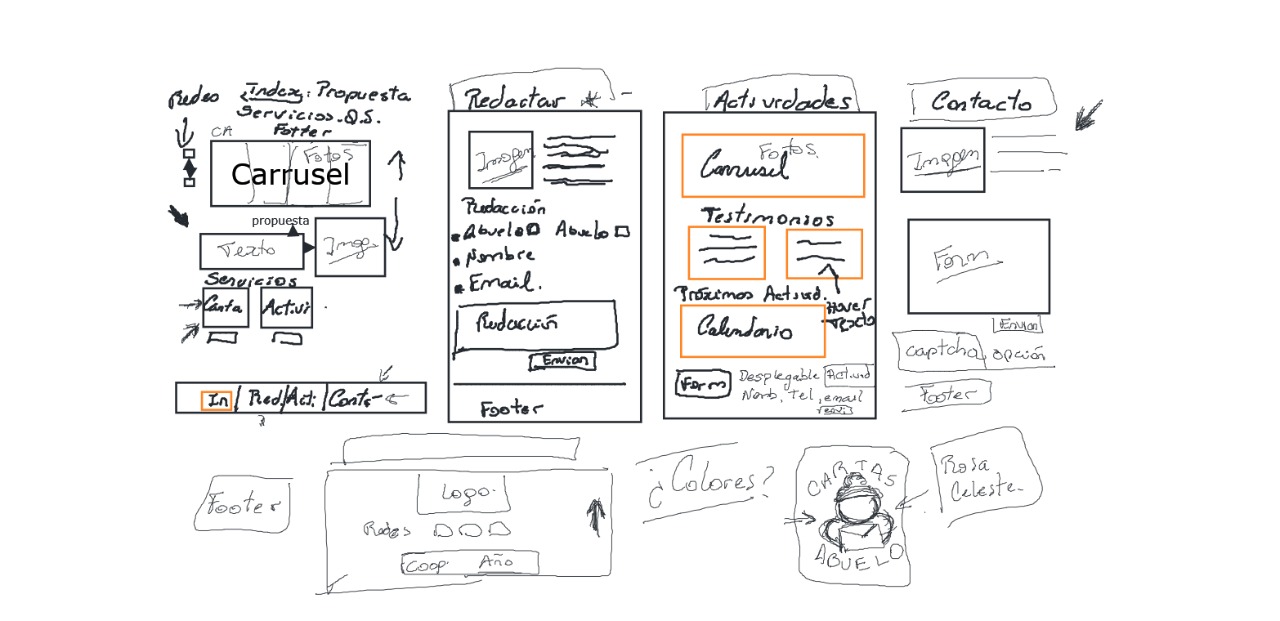 Redes
Index: Propuesta
Servicios. Q.S.
Fotter
CA
Fotos
Carrusel
propuesta
Texto
Imag.
Servicios
Carta
Activi
In Red/Act. Conta
Redactar
Imagen
Redacción
Abuelo Abuelo
Nombre
Email.
Redacción
Envian
Footer
Actividades
Fotos.
Carrusel
Testimonios
Próximos Activid.
Hover
Texto
Calendario
Form
Desplegable Activid
Nomb, Tel, email
Contacto
Imagen
Form
Envian
captcha, opción
Footer
Footer
Logo.
Redes
Coop. Año
¿Colores?
CARTAS
ABUELO
Rosa
Celeste.